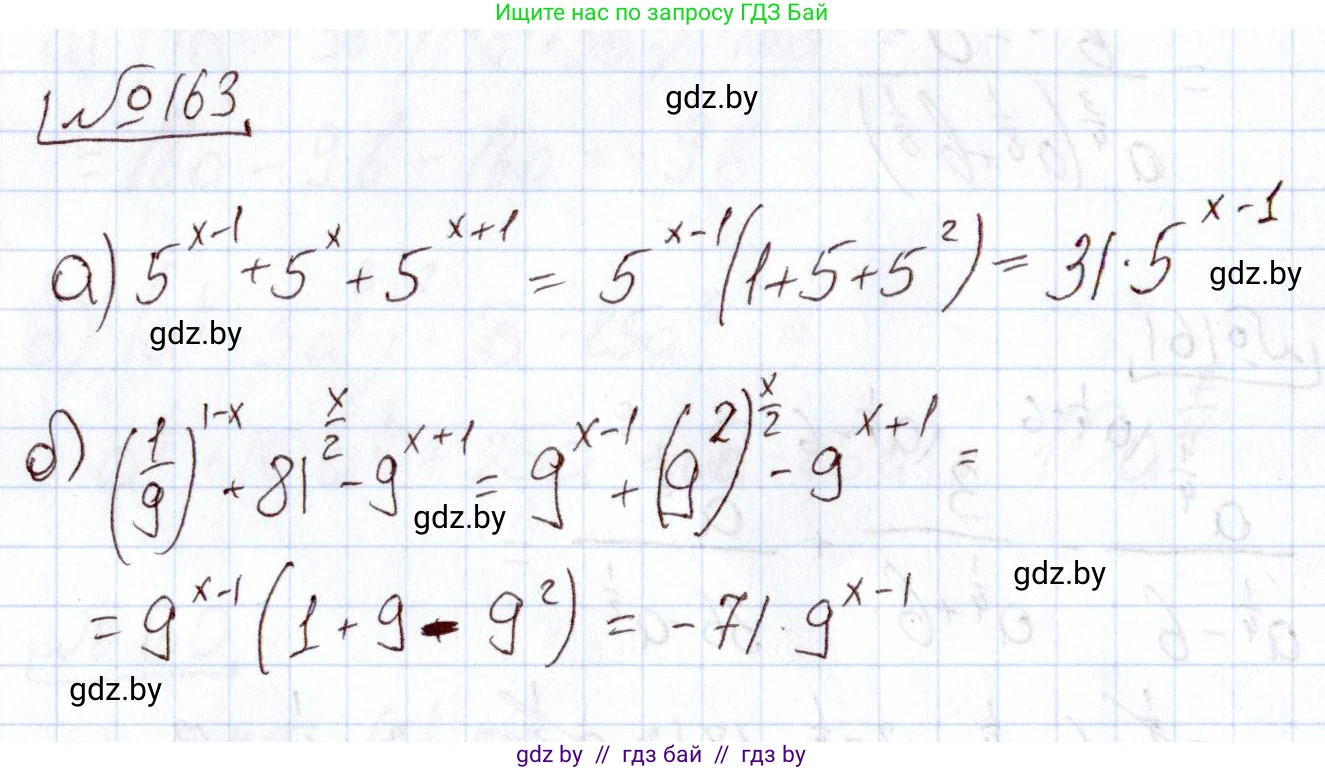 Ищите нас по запросу ГДЗ Бай
№163
gdz.by
а) 5^{x-1} + 5^x + 5^{x+1} = 5^{x-1}(1+5+5^2) = 31·5^{x-1}
gdz.by
gdz.by
б) (1/9)^{1-x} + 81^{x/2} - 9^{x+1} = 9^{x-1} + (9^2)^{x/2} - 9^{x+1} =
gdz.by
gdz.by
= 9^{x-1}(1 + 9 - 9^2) = -71·9^{x-1}
gdz.by
gdz by // гдз бай // gdz by